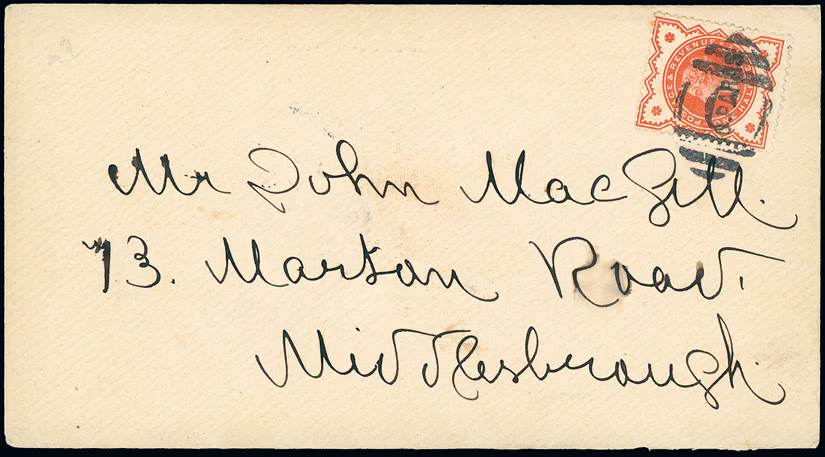 Mr John MacGill.
73. Marton Road.
Middlesbrough.
POSTAGE & REVENUE
ONE HALF